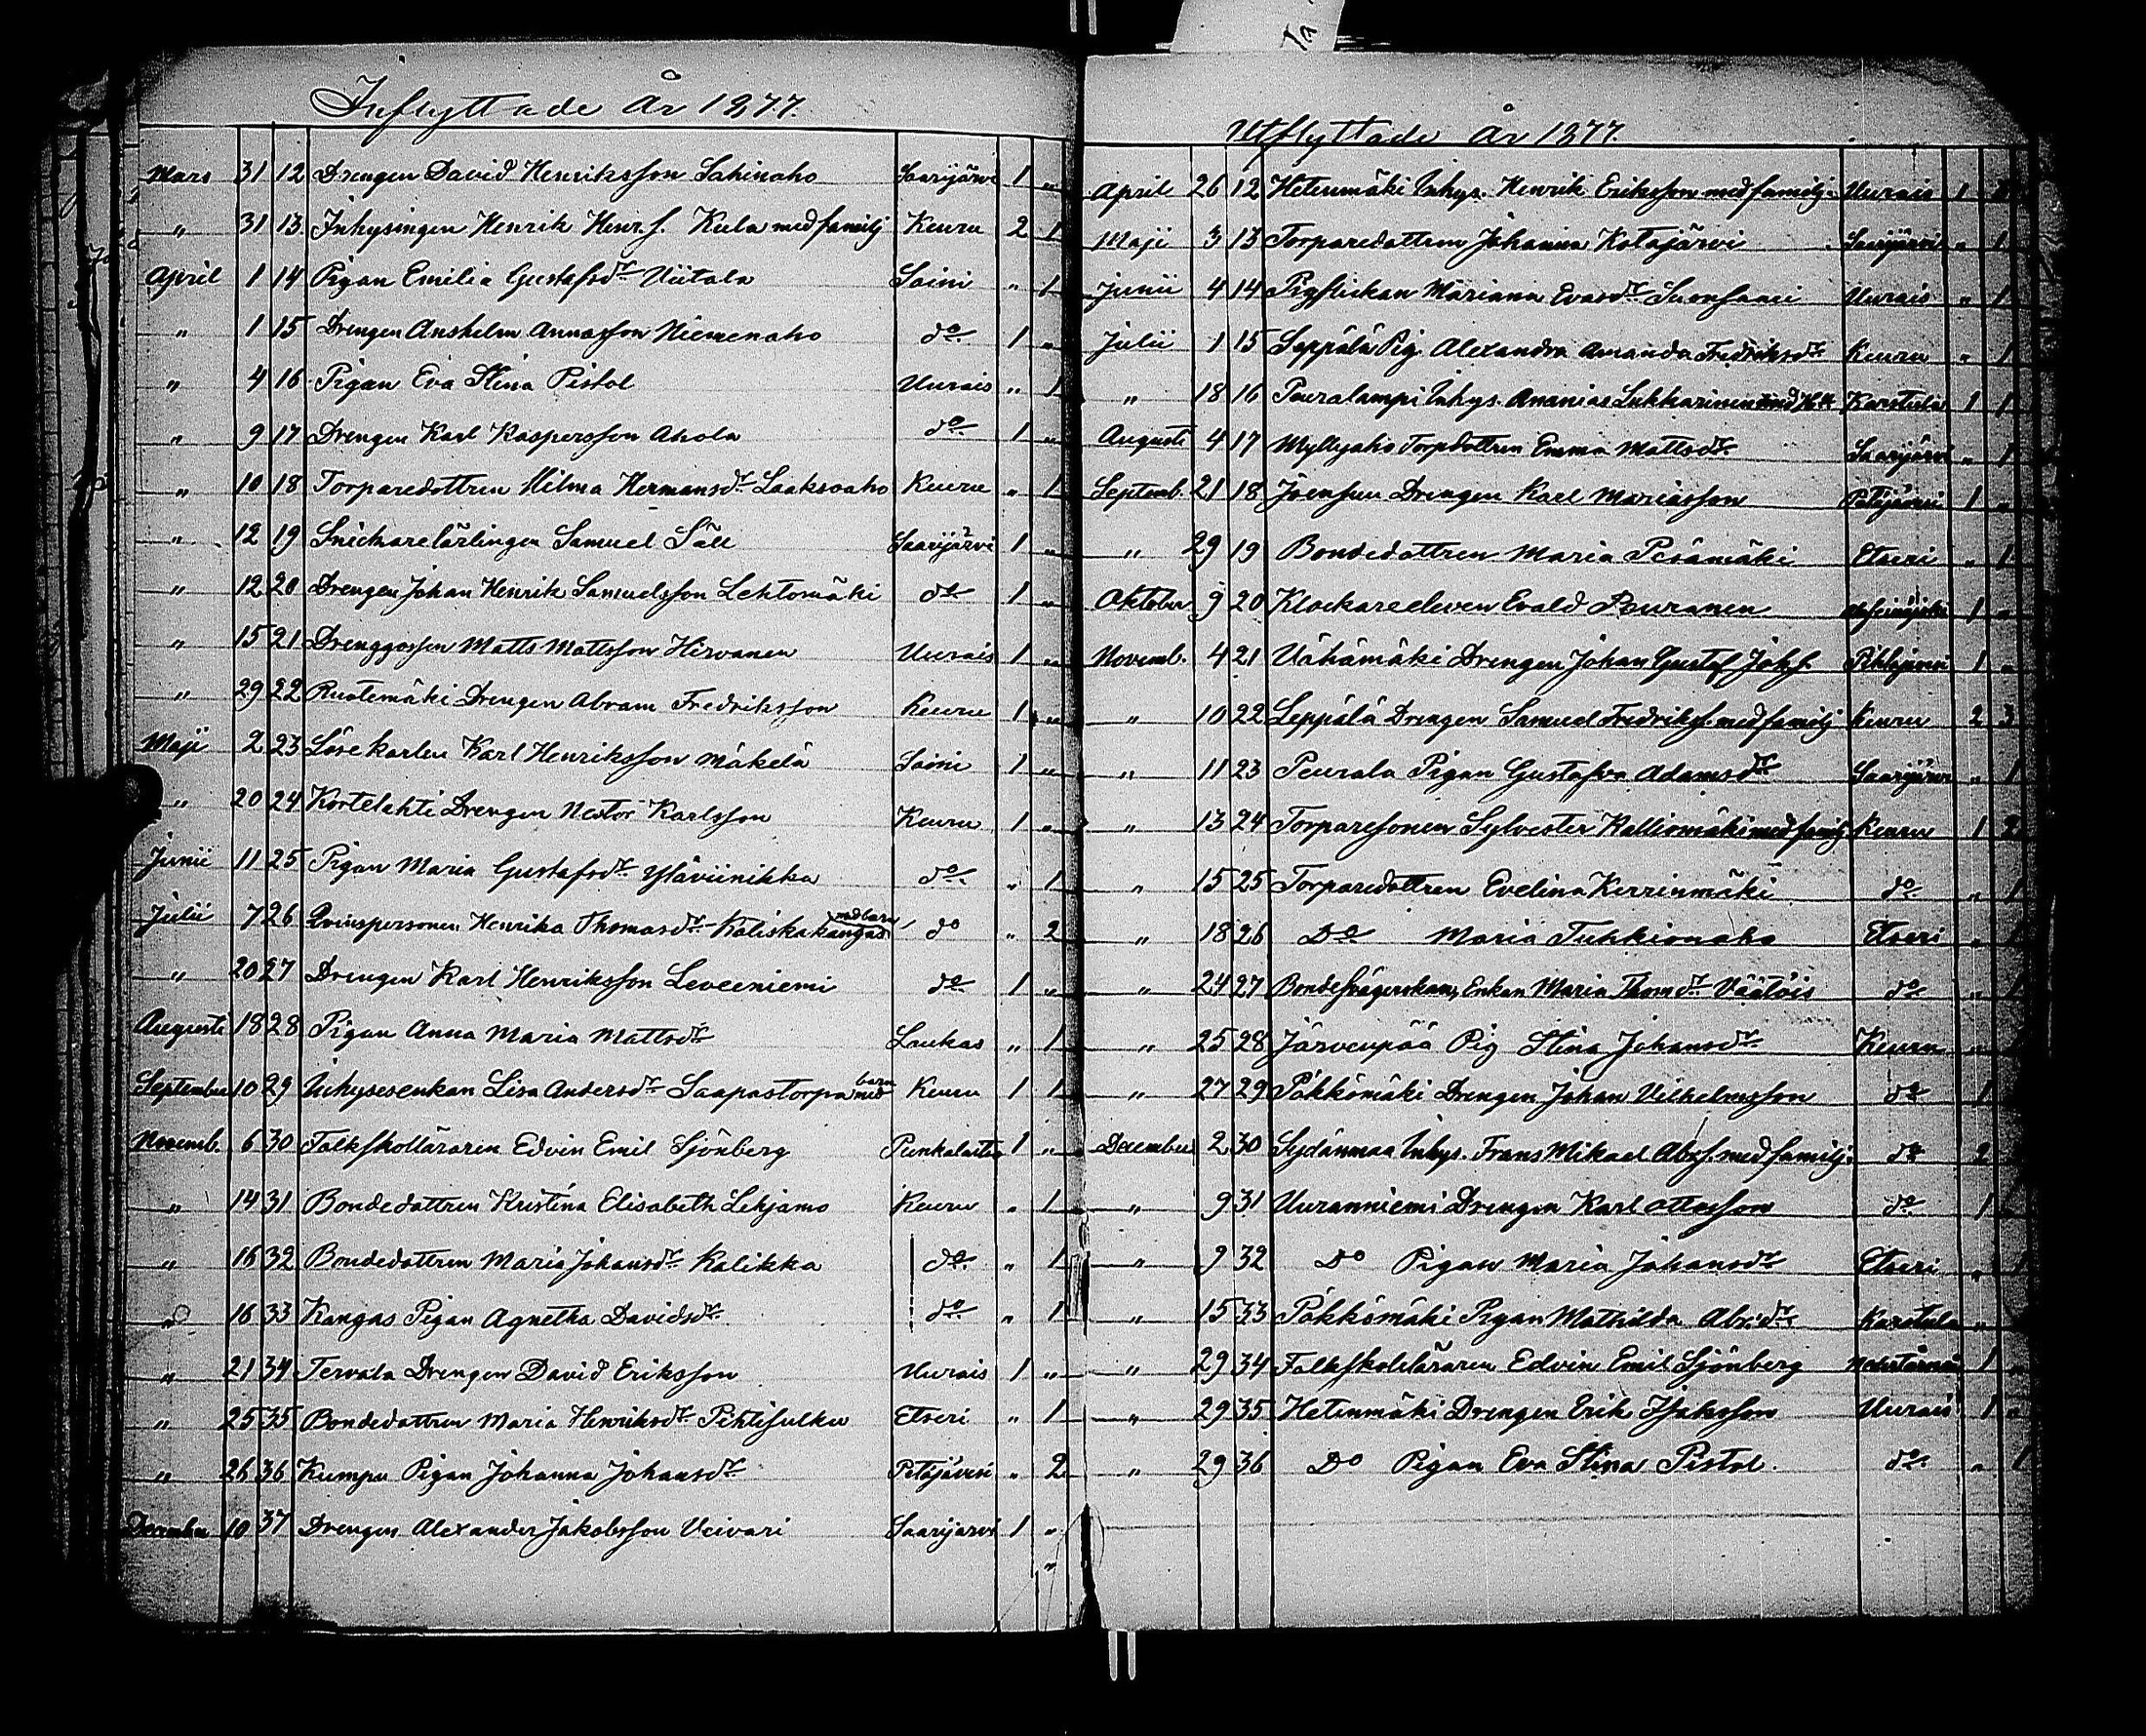 Inflyttade År 1877.
Mars 31 12 Drengen David Henriksson Sahinaho Saarijärvi 1 "
" 31 13 Inhysingen Henrik Henrs. Kula med familj Keuru 2 1
April 1 14 Pigan Emilia Gustafsdr Viitala Saini " 1
" 1 15 Drengen Anshelm Annasson Niemenaho do 1 "
" 4 16 Pigan Eva Stina Pistol Uurais " 1
" 9 17 Drengen Karl Kaspersson Ahola do 1 "
" 10 18 Torparedottren Hilma Hermansdr Laaksoaho Keuru " 1
" 12 19 Snickarelärlingen Samuel Säll Saarijärvi 1 "
" 12 20 Drengen Johan Henrik Samuelsson Lehtomäki do 1 "
" 15 21 Drenggossen Matts Mattsson Hirvanen Uurais 1 "
" 29 22 Ruotemäki Drengen Abram Fredriksson Keuru 1 "
Maji 2 23 Löse karlen Karl Henriksson Mäkelä Saini 1 "
" 20 24 Kortelahti Drengen Nestor Karlsson Keuru 1 "
Junii 11 25 Pigan Maria Gustafsdr Yläviinikka do " 1
Julii 7 26 Qvinspersonen Henrika Thomasdr Kaliskakangas med barn do " 2
" 20 27 Drengen Karl Henriksson Leveeniemi do 1 "
Augusti 18 28 Pigan Anna Maria Mattsdr Laukas " 1
September 10 29 Inhysesenkan Lisa Andersdr Saapastorpa med barn Keuru 1 1
Novemb. 6 30 Folkskolläraren Edvin Emil Sjönberg Punkalaitio 1 "
" 14 31 Bondedottren Kristina Elisabeth Lehjamo Keuru " 1
" 16 32 Bondedottren Maria Johansdr Kalikka do " 1
" 16 33 Kangas Pigan Agnetha Davidsdr do " 1
" 21 34 Tervala Drengen David Eriksson Uurais 1 "
" 25 35 Bondedottren Maria Henriksdr Pihtisulku Etseri " 1
" 26 36 Kumpu Pigan Johanna Johansdr Petäjävesi " 2
December 10 37 Drengen Alexander Jakobsson Veivari Saarijarvi 1 "
"
Utflyttade År 1877.
April 26 12 Hetenmäki Inhys. Henrik Eriksson med familj Uurais 1
Maji 3 13 Torparedottren Johanna Kotajärvi Saarijärvi " 1
Junii 4 14 Pigflickan Mariana Evasdr Suonsaari Uurais " 1
Julii 1 15 Seppälä Pig. Alexandra Amanda Fredriksdr Keuru " 1
" 18 16 Peuralampi Inhys. Ananias Lukkarinen med Hu Karstula 1 1
Augusti 4 17 Myllyaho Torpdottren Emma Mattsdr Saarijärvi " 1
Septemb. 21 18 Joensuu Drengen Karl Mariasson Petäjävesi 1 "
" 29 19 Bondedottren Maria Pesämäki Etseri " 1
Oktober 9 20 Klockareeleven Evald Peuranen 1 "
Novemb. 4 21 Vähämäki Drengen Johan Gustaf Johss. Pihlajavesi 1 "
" 10 22 Leppälä Drengen Samuel Fredrikss. med familj Keuru 2 3
" 11 23 Peurala Pigan Gustafva Adamsdr Saarijärvi " 1
" 13 24 Torparesonen Sylvester Kalliomäki med familj Keuru 1 2
" 15 25 Torparedottren Evelina Kerrinmäki do " 1
" 18 26 Do Maria Tuhkionaho Etseri " 1
" 24 27 Bondesvägerskan, Enkan Maria Thomdr Väätäis do " 1
" 25 28 Järvenpää Pig Stina Johansdr Keuru "
" 27 29 Pökkömäki Drengen Johan Vilhelmsson do 1
December 2 30 Sydänmaa Inhys. Frans Mikael Abrs. med familj do 2
" 9 31 Uuranniemi Drengen Karl Ottosson do 1
" 9 32 Do Pigan Maria Johansdr Etseri "
" 15 33 Pökkömäki Pigan Mathilda Abr:dr Karstula "
" 29 34 Folkskolläraren Edvin Emil Sjönberg 1 "
" 29 35 Hetenmäki Drengen Erik Isaksson Uurais 1 "
" 29 36 Do Pigan Eva Stina Pistol. do " 1